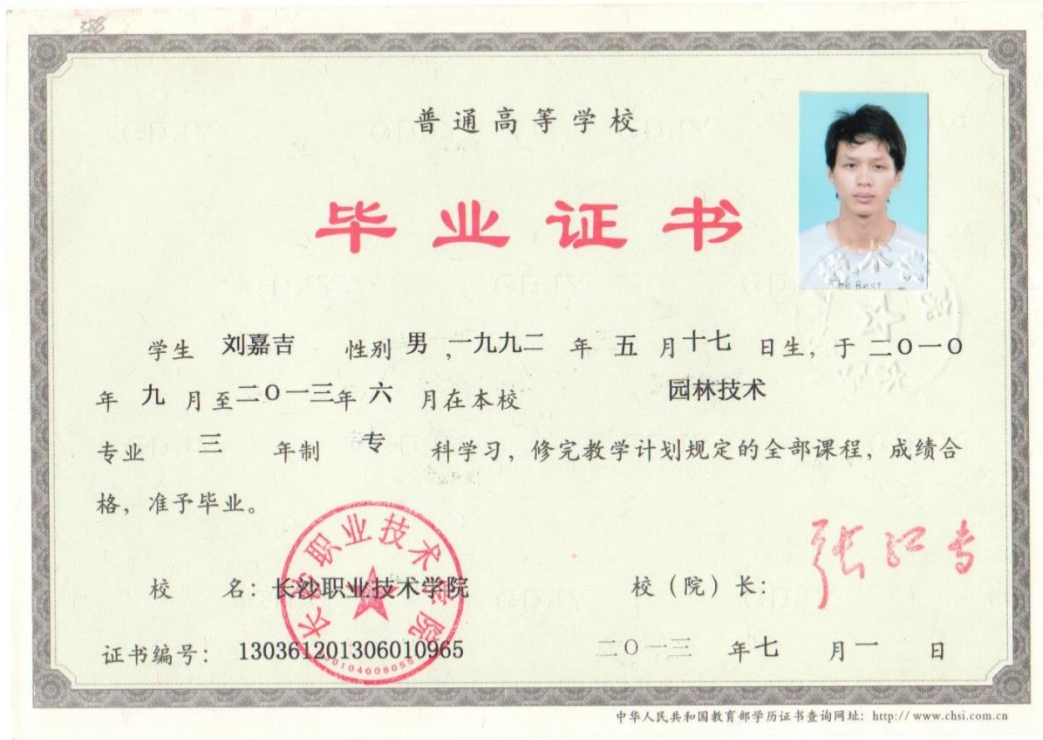 388
普通高等学校
毕业证书
The Best
学生 刘嘉吉 性别 男 ,一九九二 年 五 月十七 日生，于 二〇一〇
年 九 月至二〇一三年 六 月在本校 园林技术
专业 三 年制 专 科学习，修完教学计划规定的全部课程，成绩合
格，准予毕业。
长沙职业技术学院
校 名：长沙职业技术学院 校（院）长：
证书编号：130361201306010965 二〇一三 年七 月一 日
中华人民共和国教育部学历证书查询网址：http:// www.chsi.com.cn